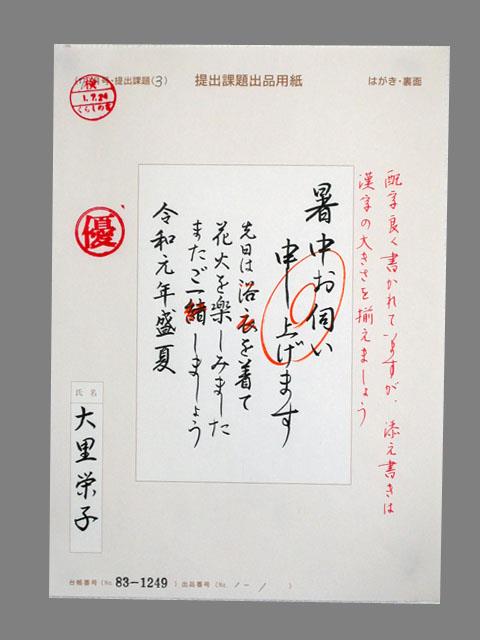 号・提出課題(3)
提出課題出品用紙
はがき・裏面
検
1.7.24
くらしの書
優
配字良く書かれていますが、添え書きは
漢字の大きさを揃えましょう
暑中お伺い
申し上げます
先日は浴衣を着て
花火を楽しみました
またご一緒しましょう
令和元年盛夏
氏名
大里栄子
台帳番号(No. 83-1249 ) 出品番号(No. /-/ )